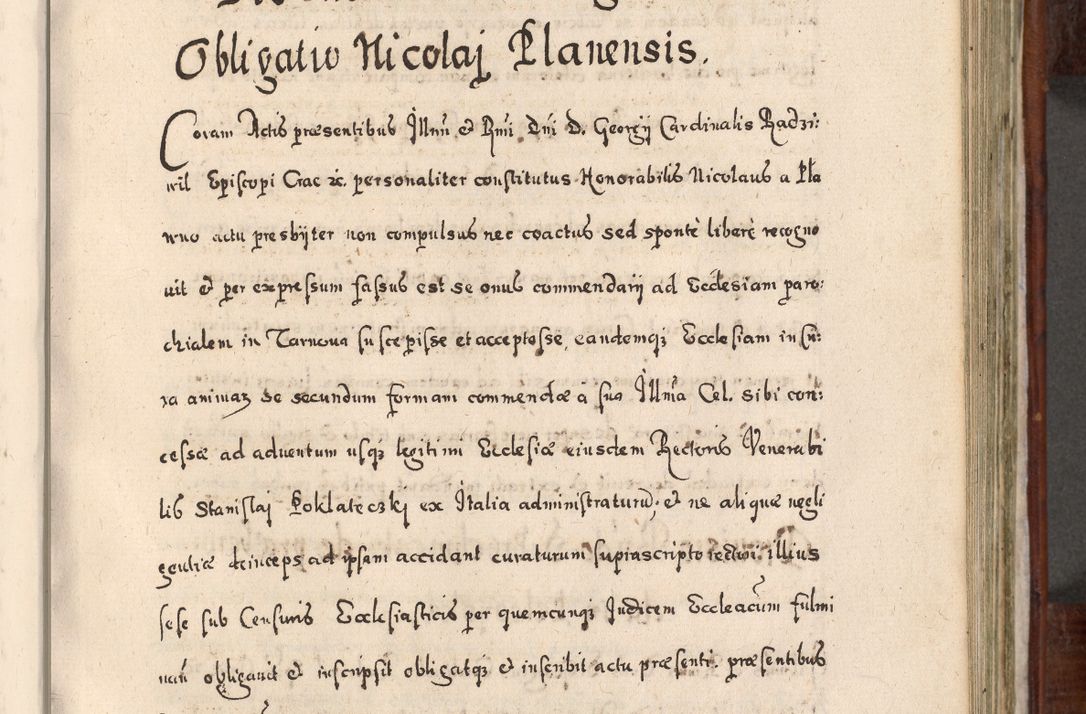 Obligatio Nicolaj Planensis.
Coram Actis præsentibus Illmi et Rmi Dni D. Georgij Cardinalis Radzi:
wil Episcopi Crac &c. personaliter constitutus Honorabilis Nicolaus a Pla
wno actu presbijter non compulsus nec coactus sed spontè liberè recogno
uit et per expressum fassus est se onus commendarij ad Ecclesiam paro:
chialem in Tarnoua suscepisse et acceptasse, eandemq Ecclesiam in cu:
ra animaz se secundum formam commendæ a sua Illma Cel. sibi con:
cessæ ad aduentum usq legitimi Ecclesiæ eiusdem Rectoris Venerabi
lis Stanislaj Poklateczkj ex Italia administraturu, et ne aliquæ negli
gentiæ deinceps ad ipsam accidant curaturum suprascripto rectori illius
sese sub Censuris Ecclesiasticis per quemcunq Iudicem Eccleacum fulmi
nan obligauit et inscripsit obligatq et inscribit actu præsenti. præsentibus